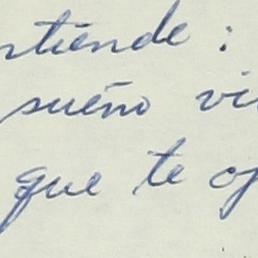 rtiende :
sueño vi
que te